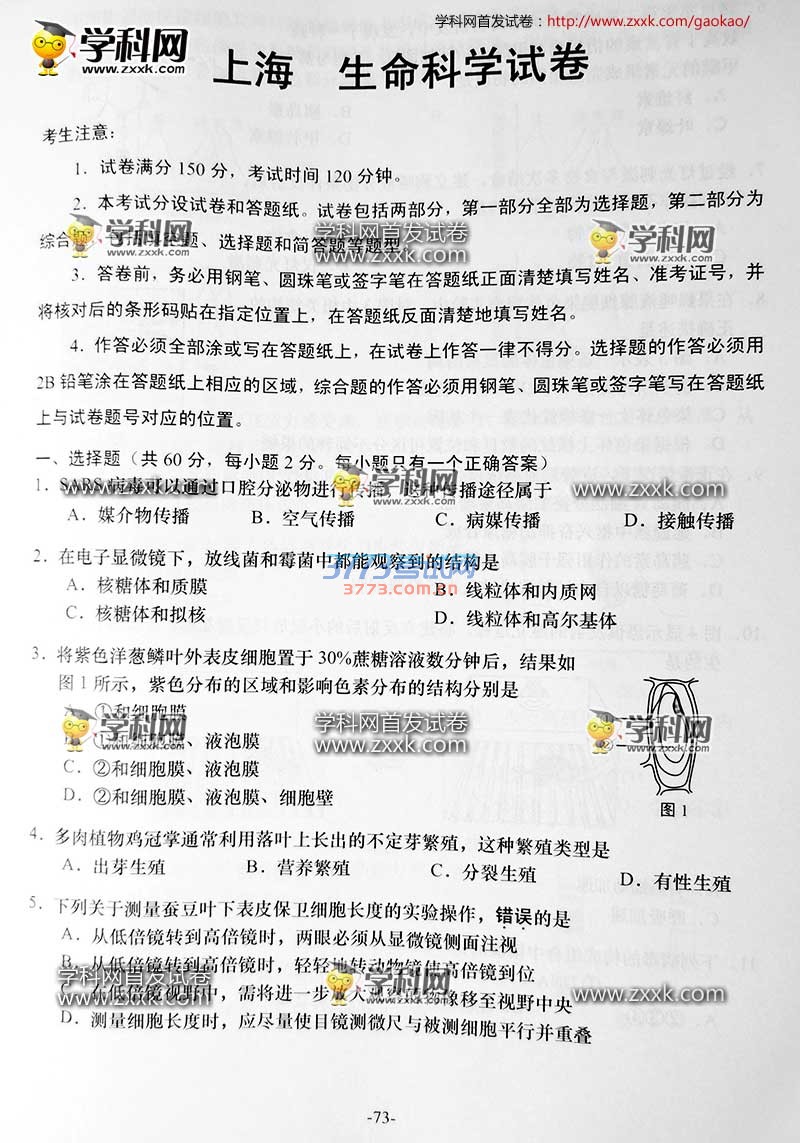 学科网首发试卷：http://www.zxxk.com/gaokao/
学科网
www.zxxk.com
上海 生命科学试卷
考生注意：
1．试卷满分 150 分，考试时间 120 分钟。
2．本考试分设试卷和答题纸。试卷包括两部分，第一部分全部为选择题，第二部分为
综合题 题、选择题和简答题等题型。
3．答卷前，务必用钢笔、圆珠笔或签字笔在答题纸正面清楚填写姓名、准考证号，并
将核对后的条形码贴在指定位置上，在答题纸反面清楚地填写姓名。
4．作答必须全部涂或写在答题纸上，在试卷上作答一律不得分。选择题的作答必须用
2B 铅笔涂在答题纸上相应的区域，综合题的作答必须用钢笔、圆珠笔或签字笔写在答题纸
上与试卷题号对应的位置。
一、选择题（共 60 分，每小题 2 分。每小题只有一个正确答案）
1．SARS 病毒可以通过口腔分泌物进行传播，这种传播途径属于
A．媒介物传播 B．空气传播 C．病媒传播 D．接触传播
2．在电子显微镜下，放线菌和霉菌中都能观察到的结构是
A．核糖体和质膜 B．线粒体和内质网
C．核糖体和拟核 D．线粒体和高尔基体
3．将紫色洋葱鳞叶外表皮细胞置于 30%蔗糖溶液数分钟后，结果如
图 1 所示，紫色分布的区域和影响色素分布的结构分别是
A．①和细胞膜
B．①和细胞膜、液泡膜
C．②和细胞膜、液泡膜
D．②和细胞膜、液泡膜、细胞壁
②
图 1
4．多肉植物鸡冠掌通常利用落叶上长出的不定芽繁殖，这种繁殖类型是
A．出芽生殖 B．营养繁殖 C．分裂生殖 D．有性生殖
5．下列关于测量蚕豆叶下表皮保卫细胞长度的实验操作，错误的是
A．从低倍镜转到高倍镜时，两眼必须从显微镜侧面注视
B．从低倍镜转到高倍镜时，轻轻地转动物镜使高倍镜到位
C．在低倍镜视野中，需将进一步放大观察的物像移至视野中央
D．测量细胞长度时，应尽量使目镜测微尺与被测细胞平行并重叠
3773考试网
3773.com.cn
学科网首发试卷
www.zxxk.com
-73-